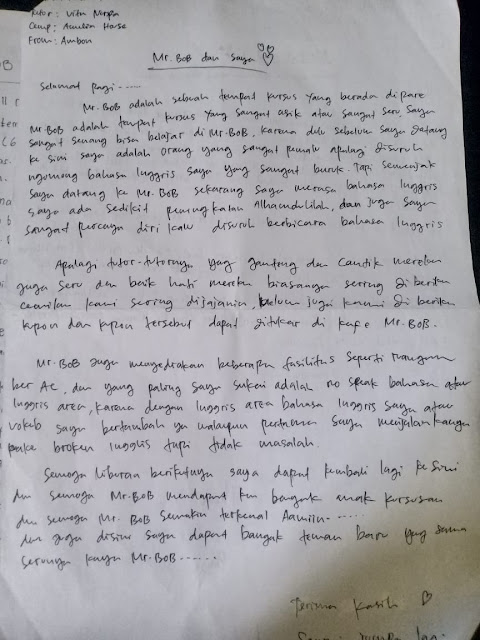 Tutor : Vita
Camp : Acumlin House
From : Ambon
Mr. BOB dan saya
Selamat Pagi ------
Mr. BOB adalah sebuah tempat kursus yang berada di pare
Mr. BOB adalah tempat kursus yang sangat asik atau sangat seru, saya
sangat senang bisa belajar di Mr. BOB, karena dulu sebelum saya datang
ke sini saya adalah orang yang sangat pemalu apalagi disuruh
ngomong bahasa Inggris saya yang sangat buruk. Tapi semenjak
saya datang ke Mr. BOB sekarang saya merasa bahasa Inggris
saya ada sedikit peningkatan Alhamdulilah, dan juga saya
sangat percaya diri kalau disuruh berbicara bahasa Inggris
Apalagi tutor-tutornya yang ganteng dan cantik mereka
juga seru dan baik hati mereka biasanya sering di berikan
cemilan kami sering dijajanin, belum juga kami di berikan
kupon dan kupon tersebut dapat ditukar di kafe Mr. BOB.
Mr. BOB juga menyediakan beberapa fasilitas seperti ruangan
ber AC, dan yang paling saya sukai adalah no speak bahasa atau
Inggris area, karena dengan Inggris area bahasa Inggris saya atau
vokab saya bertambah ya walaupun pertama saya menjalankannya
pake broken Ingglis tapi tidak masalah.
Semoga liburan berikutnya saya dapat kembali lagi ke sini
dan semoga Mr. BOB mendapat kan banyak anak kursusan
dan semoga Mr. BOB semakin terkenal Aamiin------
dan juga disini saya dapat banyak teman baru yang sama
serunya kaya Mr. BOB------
Terima kasih